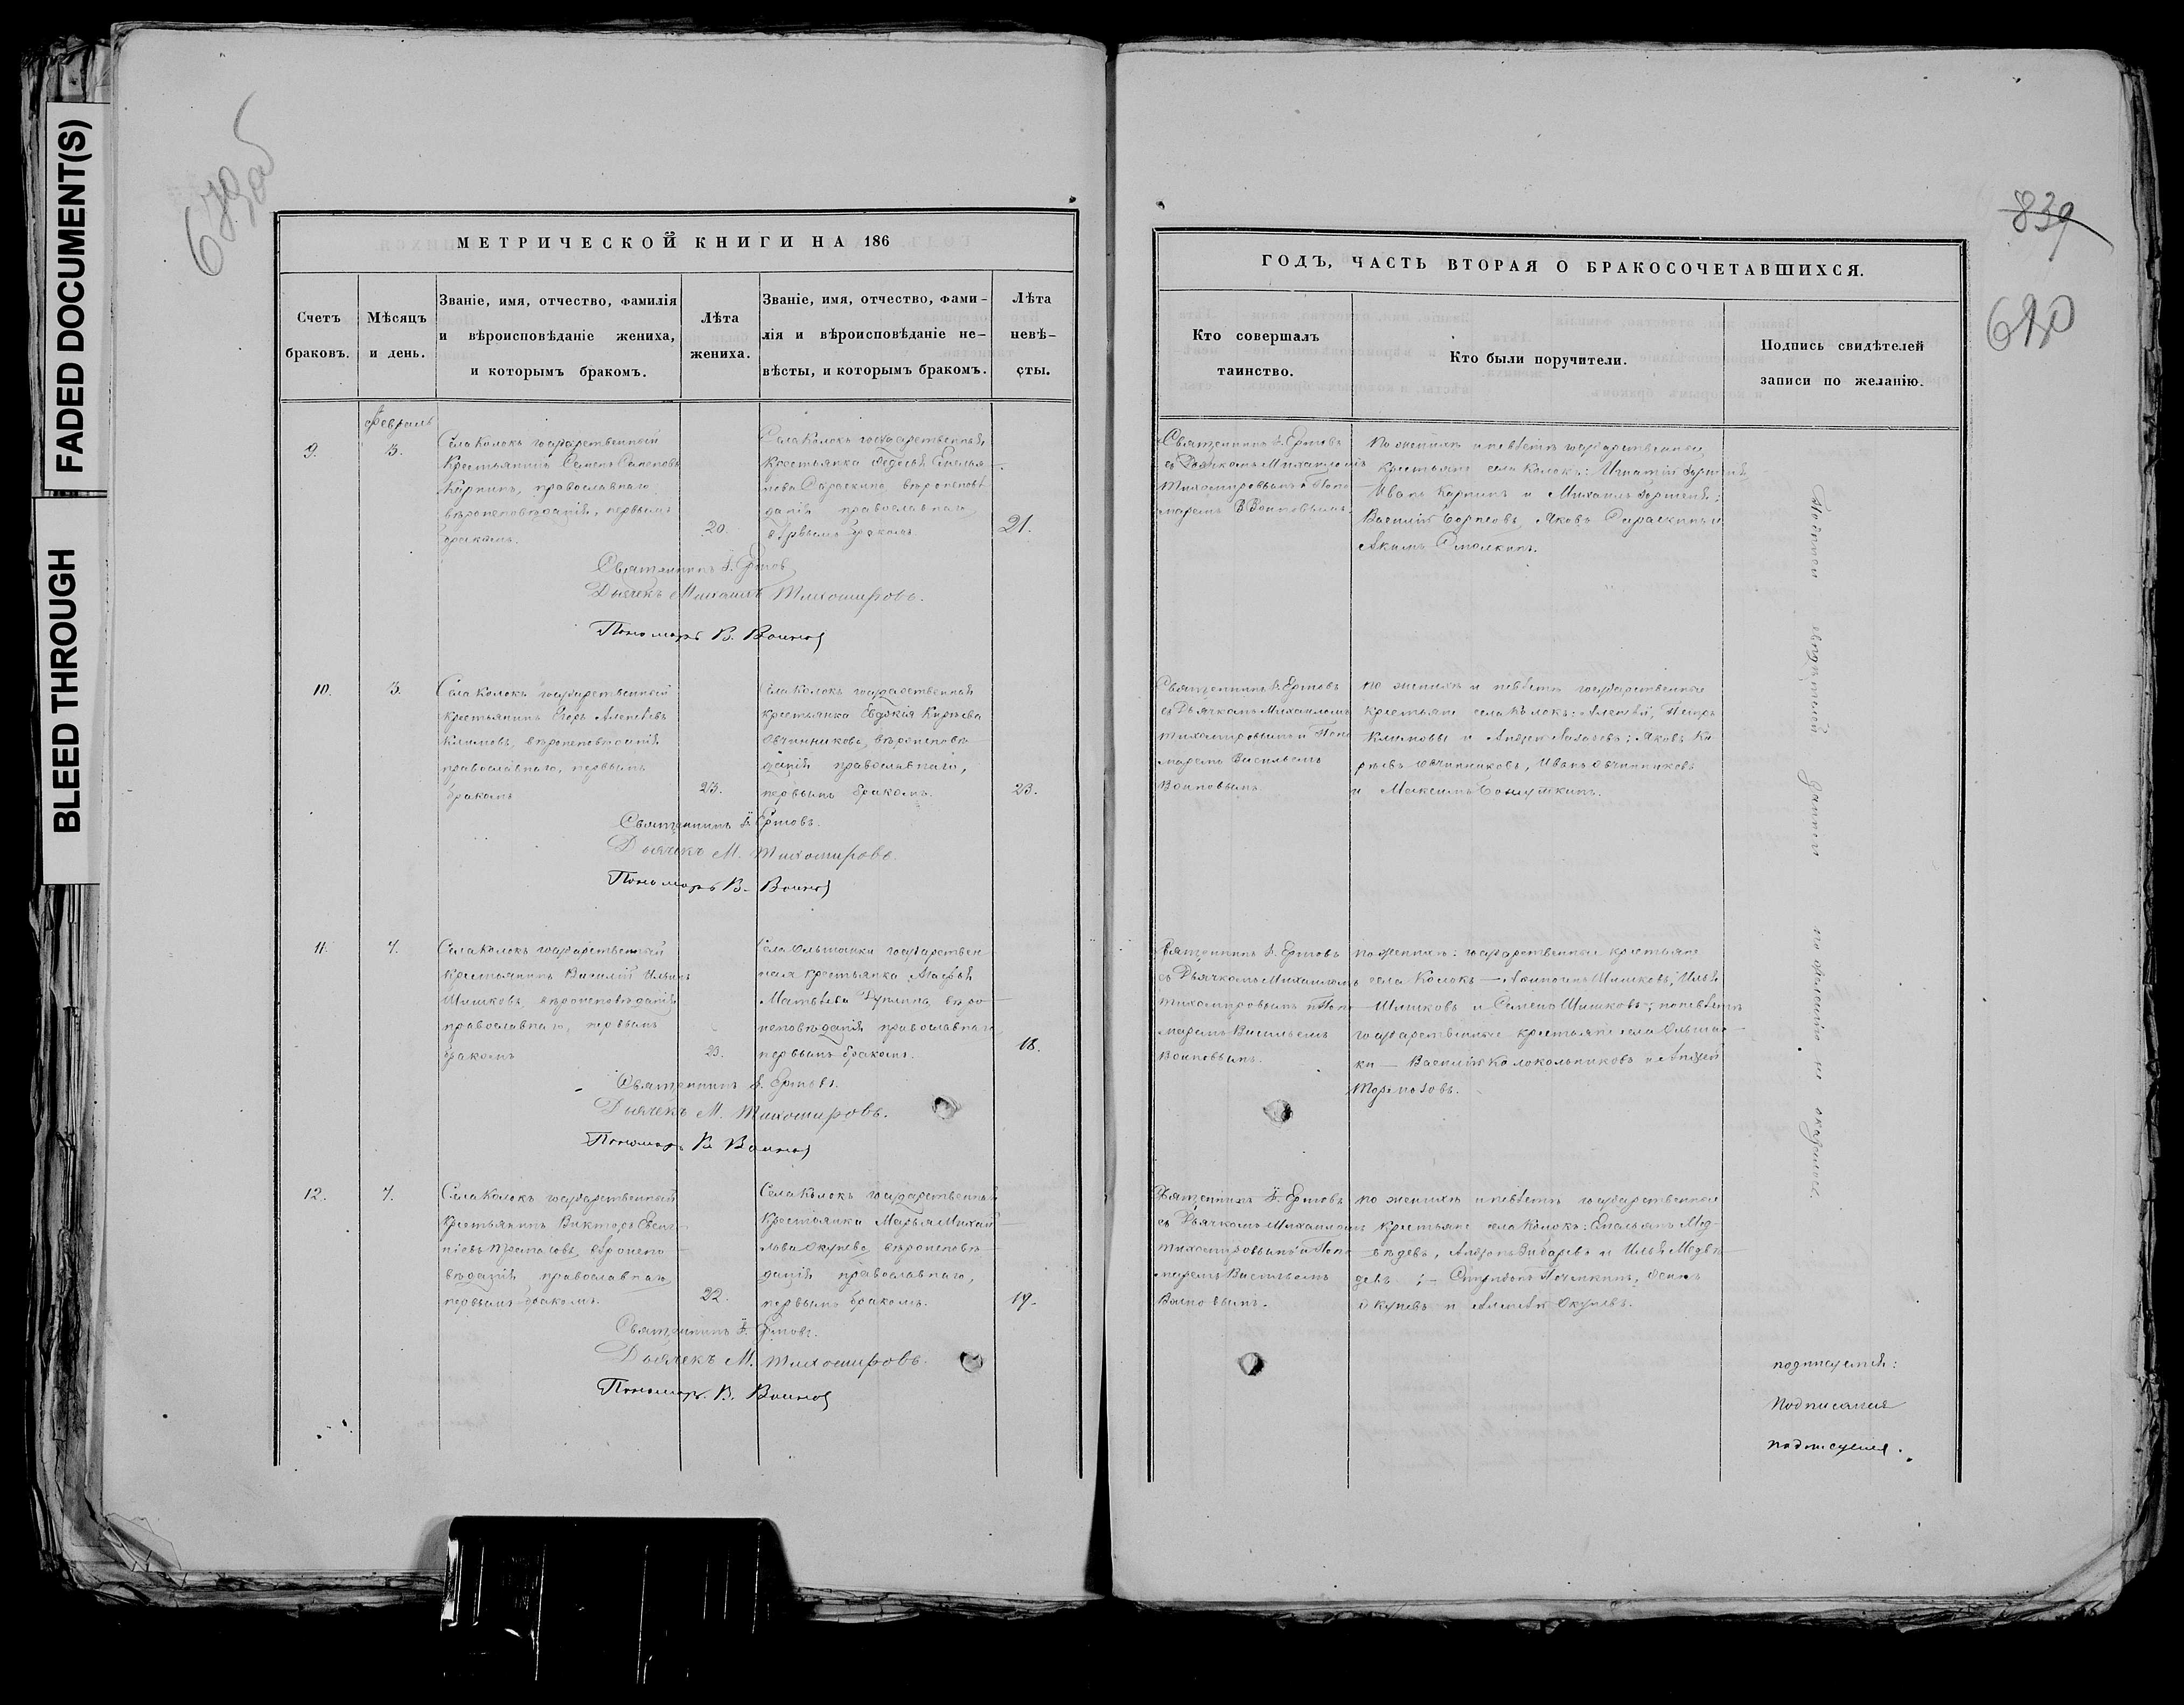 FADED DOCUMENT(S)
BLEED THROUGH
679 об
МЕТРИЧЕСКОЙ КНИГИ НА 186
Счетъ браковъ.
Мѣсяцъ и день.
Званіе, имя, отчество, фамилія и вѣроисповѣданіе жениха, и которымъ бракомъ.
Лѣта жениха.
Званіе, имя, отчество, фами-
лія и вѣроисповѣданіе не-
вѣсты, и которымъ бракомъ.
Лѣта невѣ-
сты.
Февраль
9.
3.
Села Колокъ государственный
Крестьянинъ Семенъ Семеновъ
Карпинъ, православнаго
вѣроисповѣданія, первымъ
бракомъ.
20.
Села Колокъ государственная
крестьянка Федосья Емелья-
нова вѣроисповѣ
данія православнаго
первымъ бракомъ
21.
Священникъ І. Ермовъ
Дьячекъ Михаилъ Тихомировъ.
Пономарь В. Воиновъ
10.
3.
Села Колокъ государственный
крестьянинъ Егоръ Алексѣевъ
Климовъ, вѣроисповѣданія
православнаго, первымъ
бракомъ
23.
Села Колокъ государственная
крестьянка Евдокія Кирѣева
Овчинникова, вѣроисповѣ
данія православнаго,
первымъ бракомъ.
23.
Священникъ І. Ермовъ.
Дьячекъ М. Тихомировъ.
Пономарь В. Воиновъ
11.
7.
Села Колокъ государственный
крестьянинъ Василій Ильинъ
Шишковъ, вѣроисповѣданія
православнаго, первымъ
бракомъ
23.
Села Ольшанки государствен
ная крестьянка
Матвѣева вѣро-
исповѣданія православнаго
первымъ бракомъ.
18.
Священникъ І. Ермовъ.
Дьячекъ М. Тихомировъ.
Пономарь В. Воиновъ
12.
7.
Села Колокъ государственный
Крестьянинъ Викторъ
вѣроиспо-
вѣданія православнаго
первымъ бракомъ.
22.
Села Колокъ государственная
Крестьянка Марья Михай-
лова Окунева вѣроисповѣ-
данія православнаго,
первымъ бракомъ.
19.
Священникъ І. Ермовъ.
Дьячекъ М. Тихомировъ.
Пономарь. В. Воиновъ
839
680
ГОДЪ, ЧАСТЬ ВТОРАЯ О БРАКОСОЧЕТАВШИХСЯ.
Кто совершалъ таинство.
Кто были поручители.
Подпись свидѣтелей записи по желанію.
Священникъ І. Ермовъ
съ Дьячкомъ Михаиломъ
Тихомировымъ и Поно-
маремъ В Воиновымъ.
По женихѣ и невѣстѣ государственные
крестьяне села Колокъ: Игнатій
Иванъ Карпинъ и Михаилъ
Василій Борисовъ, Яковъ и
Акимъ
Священникъ І. Ермовъ
съ Дьячкомъ Михаиломъ
Тихомировымъ и Поно
маремъ Васильемъ
Воиновымъ
по женихѣ и невѣстѣ государственные
крестьяне села Колокъ: Алексѣй, Петръ
Климовы и Андрей Яковъ Ки
рѣевъ Овчинниковъ, Иванъ Овчинниковъ
и Максимъ
Священникъ І. Ермовъ
съ Дьячкомъ Михаиломъ
Тихомировымъ и Поно
маремъ Васильемъ
Воиновымъ.
по женихѣ: государственные крестьяне
села Колокъ — Шишковъ, Илья
Шишковъ и Семенъ Шишковъ; по невѣстѣ
государственные крестьяне села Ольшан-
ки — Василій Колокольниковъ и Андрей
Священникъ І. Ермовъ
съ Дьячкомъ Михаиломъ
Тихомировымъ и Поно
маремъ Васильемъ
Воиновымъ.
по женихѣ и невѣстѣ государственные
крестьяне села Колокъ: Емельянъ Мед-
вѣдевъ, и Илья Медвѣ
девъ; — Спиридонъ
Окуневъ и Алексѣй Окуневъ.
Подписи свидѣтелей записи по желанію не оказалось.
подписуемѣ:
Подписания
подписуемя.